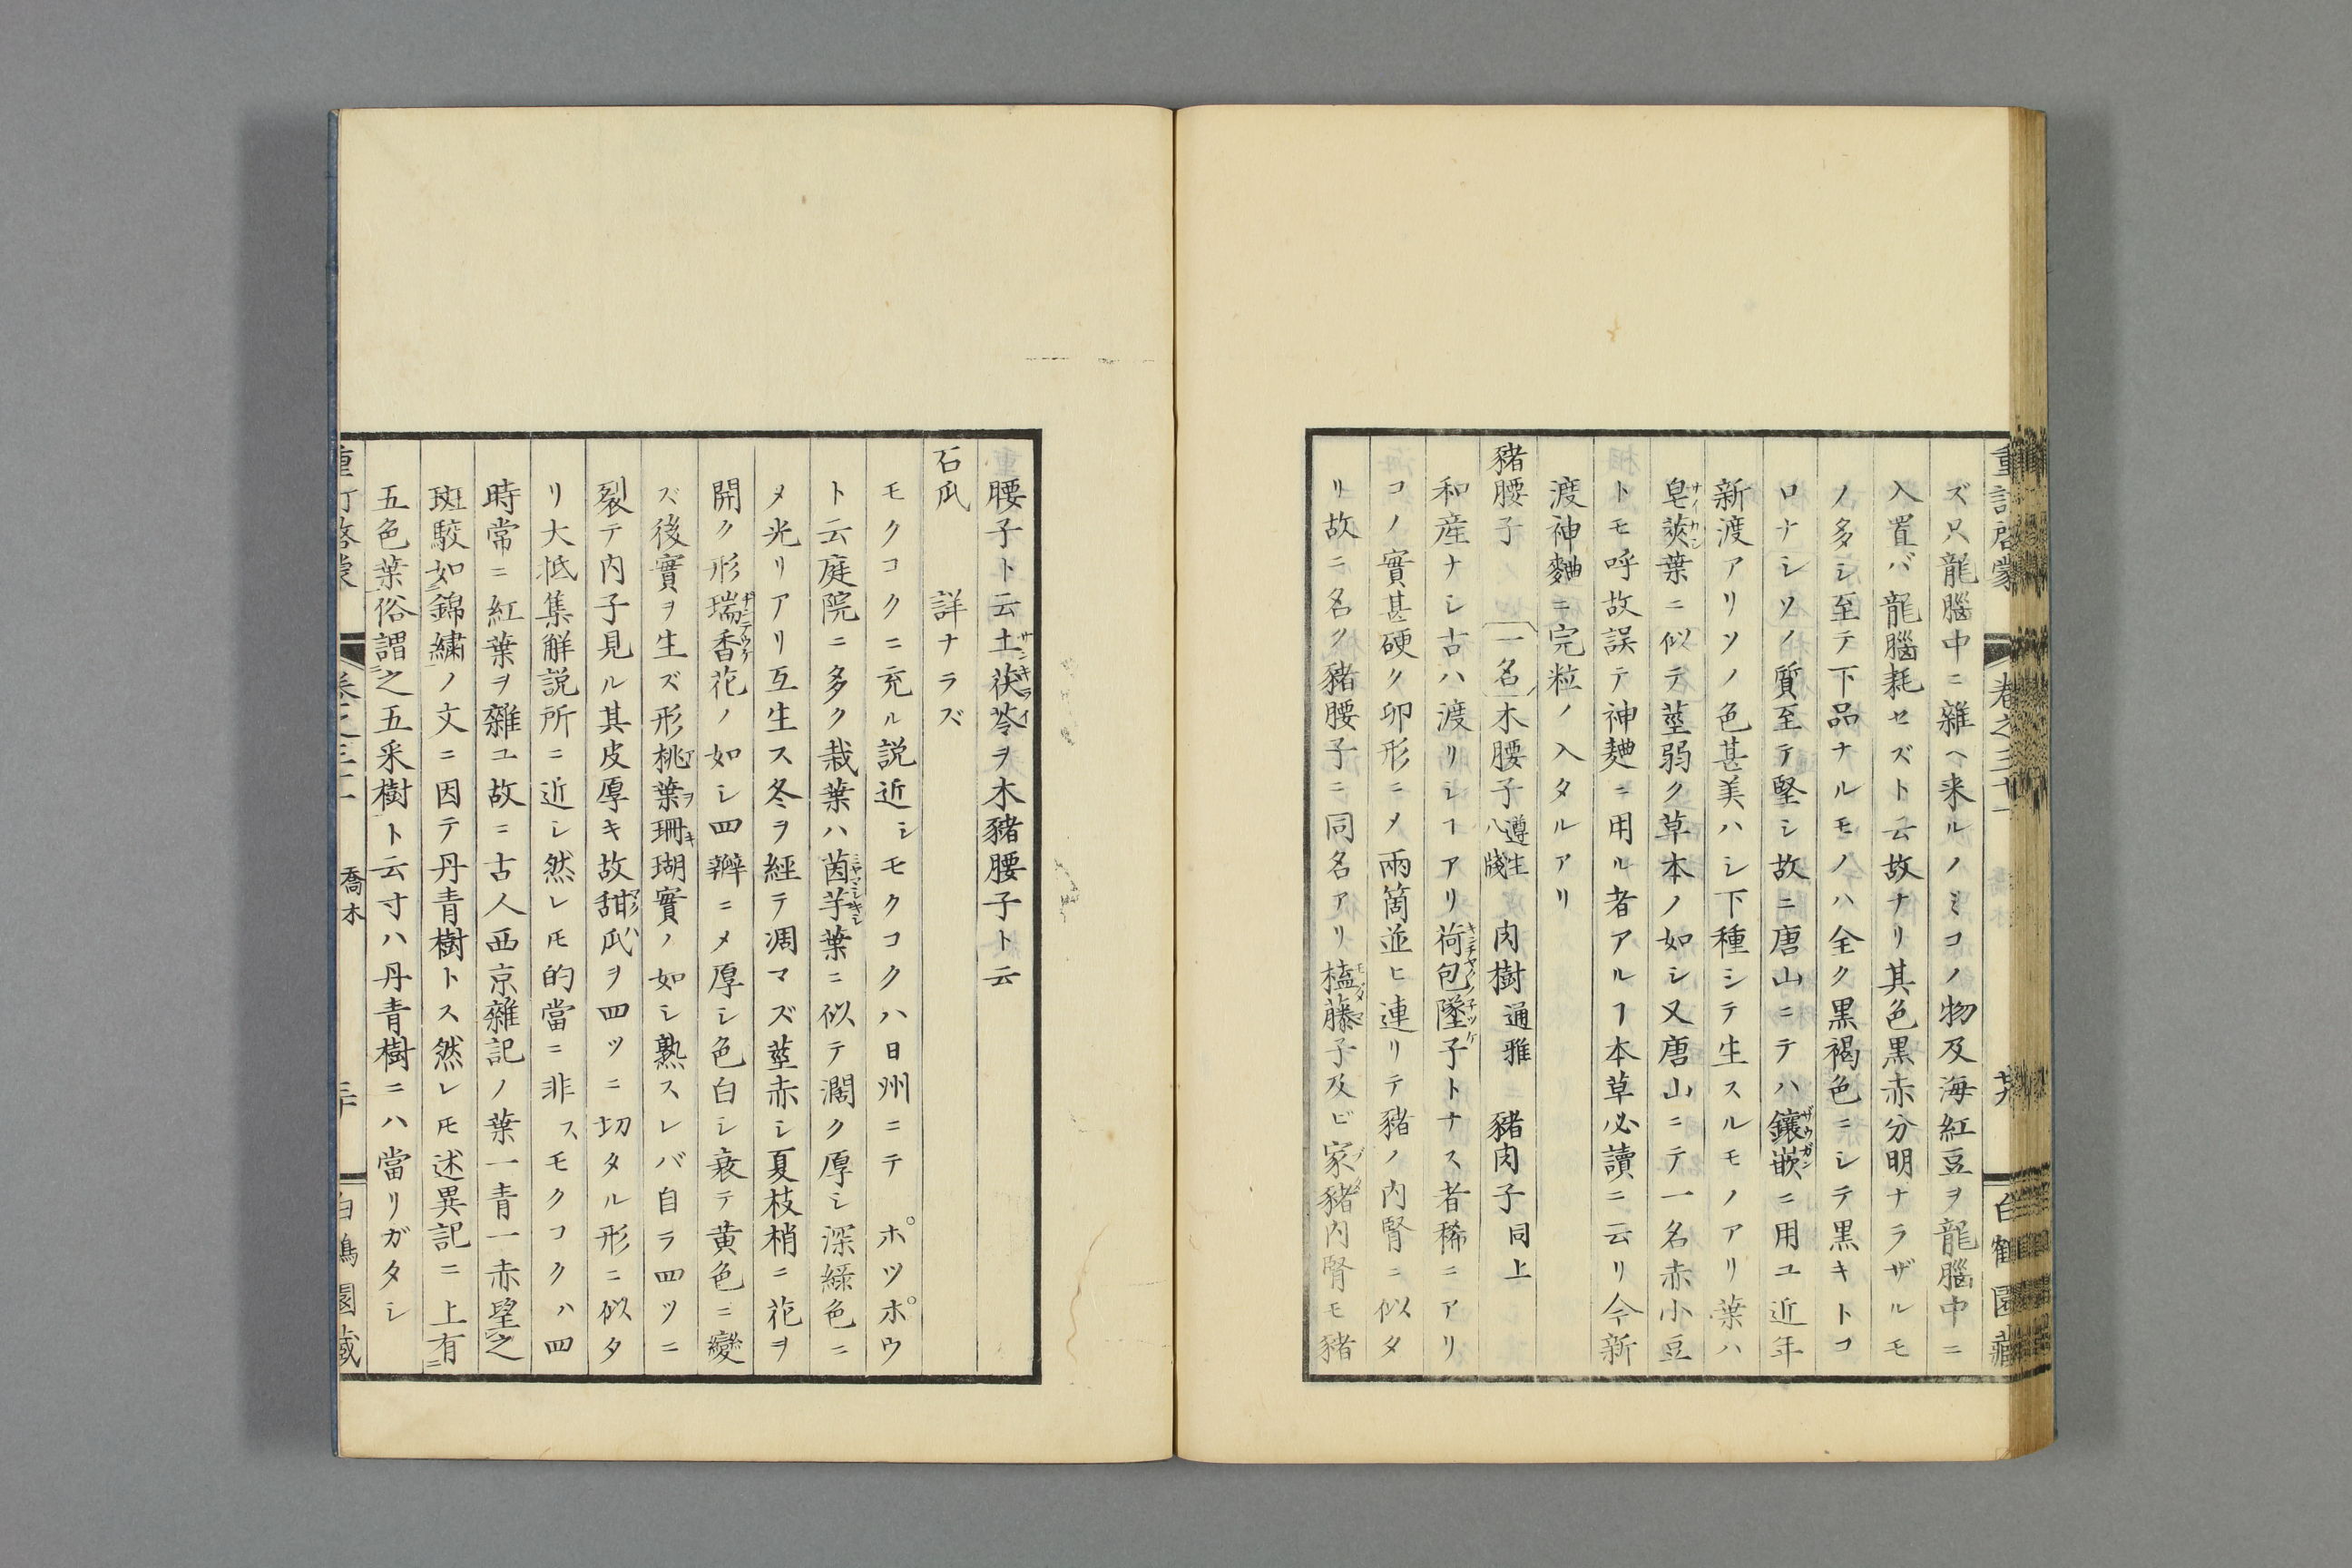 重訂啓蒙 卷之三十一 廿九 白鶴園藏
ズ只龍腦中ニ雜ヘ来ルノミコノ物及海紅豆ヲ龍腦中ニ
入置バ龍腦耗セズト云故ナリ其色黒赤分明ナラザルモ
ノ多シ至テ下品ナルモノハ全ク黒褐色ニシテ黒キトコ
ロナシソノ質至テ堅シ故ニ唐山ニテハ鑲嵌ニ用ユ近年
新渡アリソノ色甚美ハシ下種シテ生スルモノアリ葉ハ
皂莢葉ニ似テ莖弱ク草本ノ如シ又唐山ニテ一名赤小豆
トモ呼故誤テ神麯ニ用ル者アルヿ本草必讀ニ云リ今新
渡神麯ニ完粒ノ入タルアリ
豬腰子 一名 木腰子 遵生八牋 肉樹 通雅 豬肉子 同上
和産ナシ古ハ渡リシヿアリ荷包墜子トナス者稀ニアリ
コノ實甚硬ク卵形ニメ兩箇並ヒ連リテ豬ノ内腎ニ似タ
リ故ニ名ク豬腰子ニ同名アリ榼藤子及ビ家豬内腎モ豬
腰子ト云土茯苓ヲ木豬腰子ト云
石瓜 詳ナラズ
モクコクニ充ル説近シモクコクハ日州ニテ ポツポウ
ト云庭院ニ多ク栽葉ハ茵芋葉ニ似テ濶ク厚シ深緑色ニ
メ光リアリ互生ス冬ヲ經テ凋マズ莖赤シ夏枝梢ニ花ヲ
開ク形瑞香花ノ如シ四瓣ニメ厚シ色白シ衰テ黄色ニ變
ズ後實ヲ生ズ形桃葉珊瑚實ノ如シ熟スレバ自ラ四ツニ
裂テ内子見ル其皮厚キ故甜瓜ヲ四ツニ切タル形ニ似タ
リ大抵集解説所ニ近シ然レ𪜈的當ニ非スモクコクハ四
時常ニ紅葉ヲ雜ユ故ニ古人西京雜記ノ葉一青一赤望之
斑駮如錦繍ノ文ニ因テ丹青樹トス然レ𪜈述異記ニ上有
五色葉俗謂之五采樹ト云寸ハ丹青樹ニハ當リガタシ
喬木